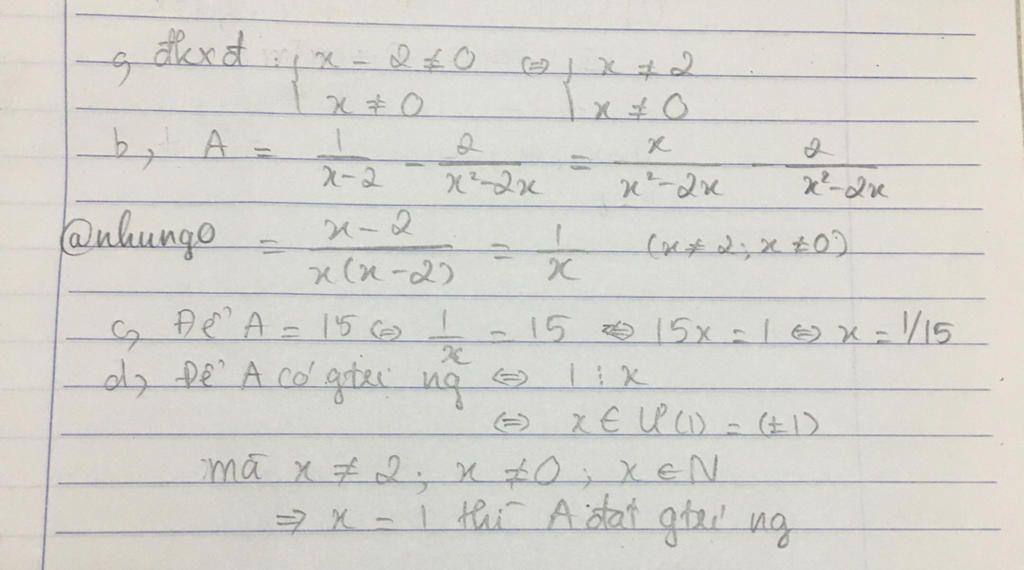 a, đkxđ : { x - 2 ≠ 0 ⇔ { x ≠ 2
x ≠ 0 x ≠ 0
b, A = 1/(x-2) - 2/(x²-2x) = x/(x²-2x) - 2/(x²-2x)
@nhung0 = (x-2)/(x(x-2)) = 1/x (x ≠ 2; x ≠ 0)
c, Để A = 15 ⇔ 1/x = 15 ⇔ 15x = 1 ⇔ x = 1/15
d, Để A có gtrị ng ⇔ 1 ⋮ x
⇔ x ∈ Ư(1) = (±1)
mà x ≠ 2; x ≠ 0; x ∈ N
⇒ x = 1 thì A đạt gtrị ng